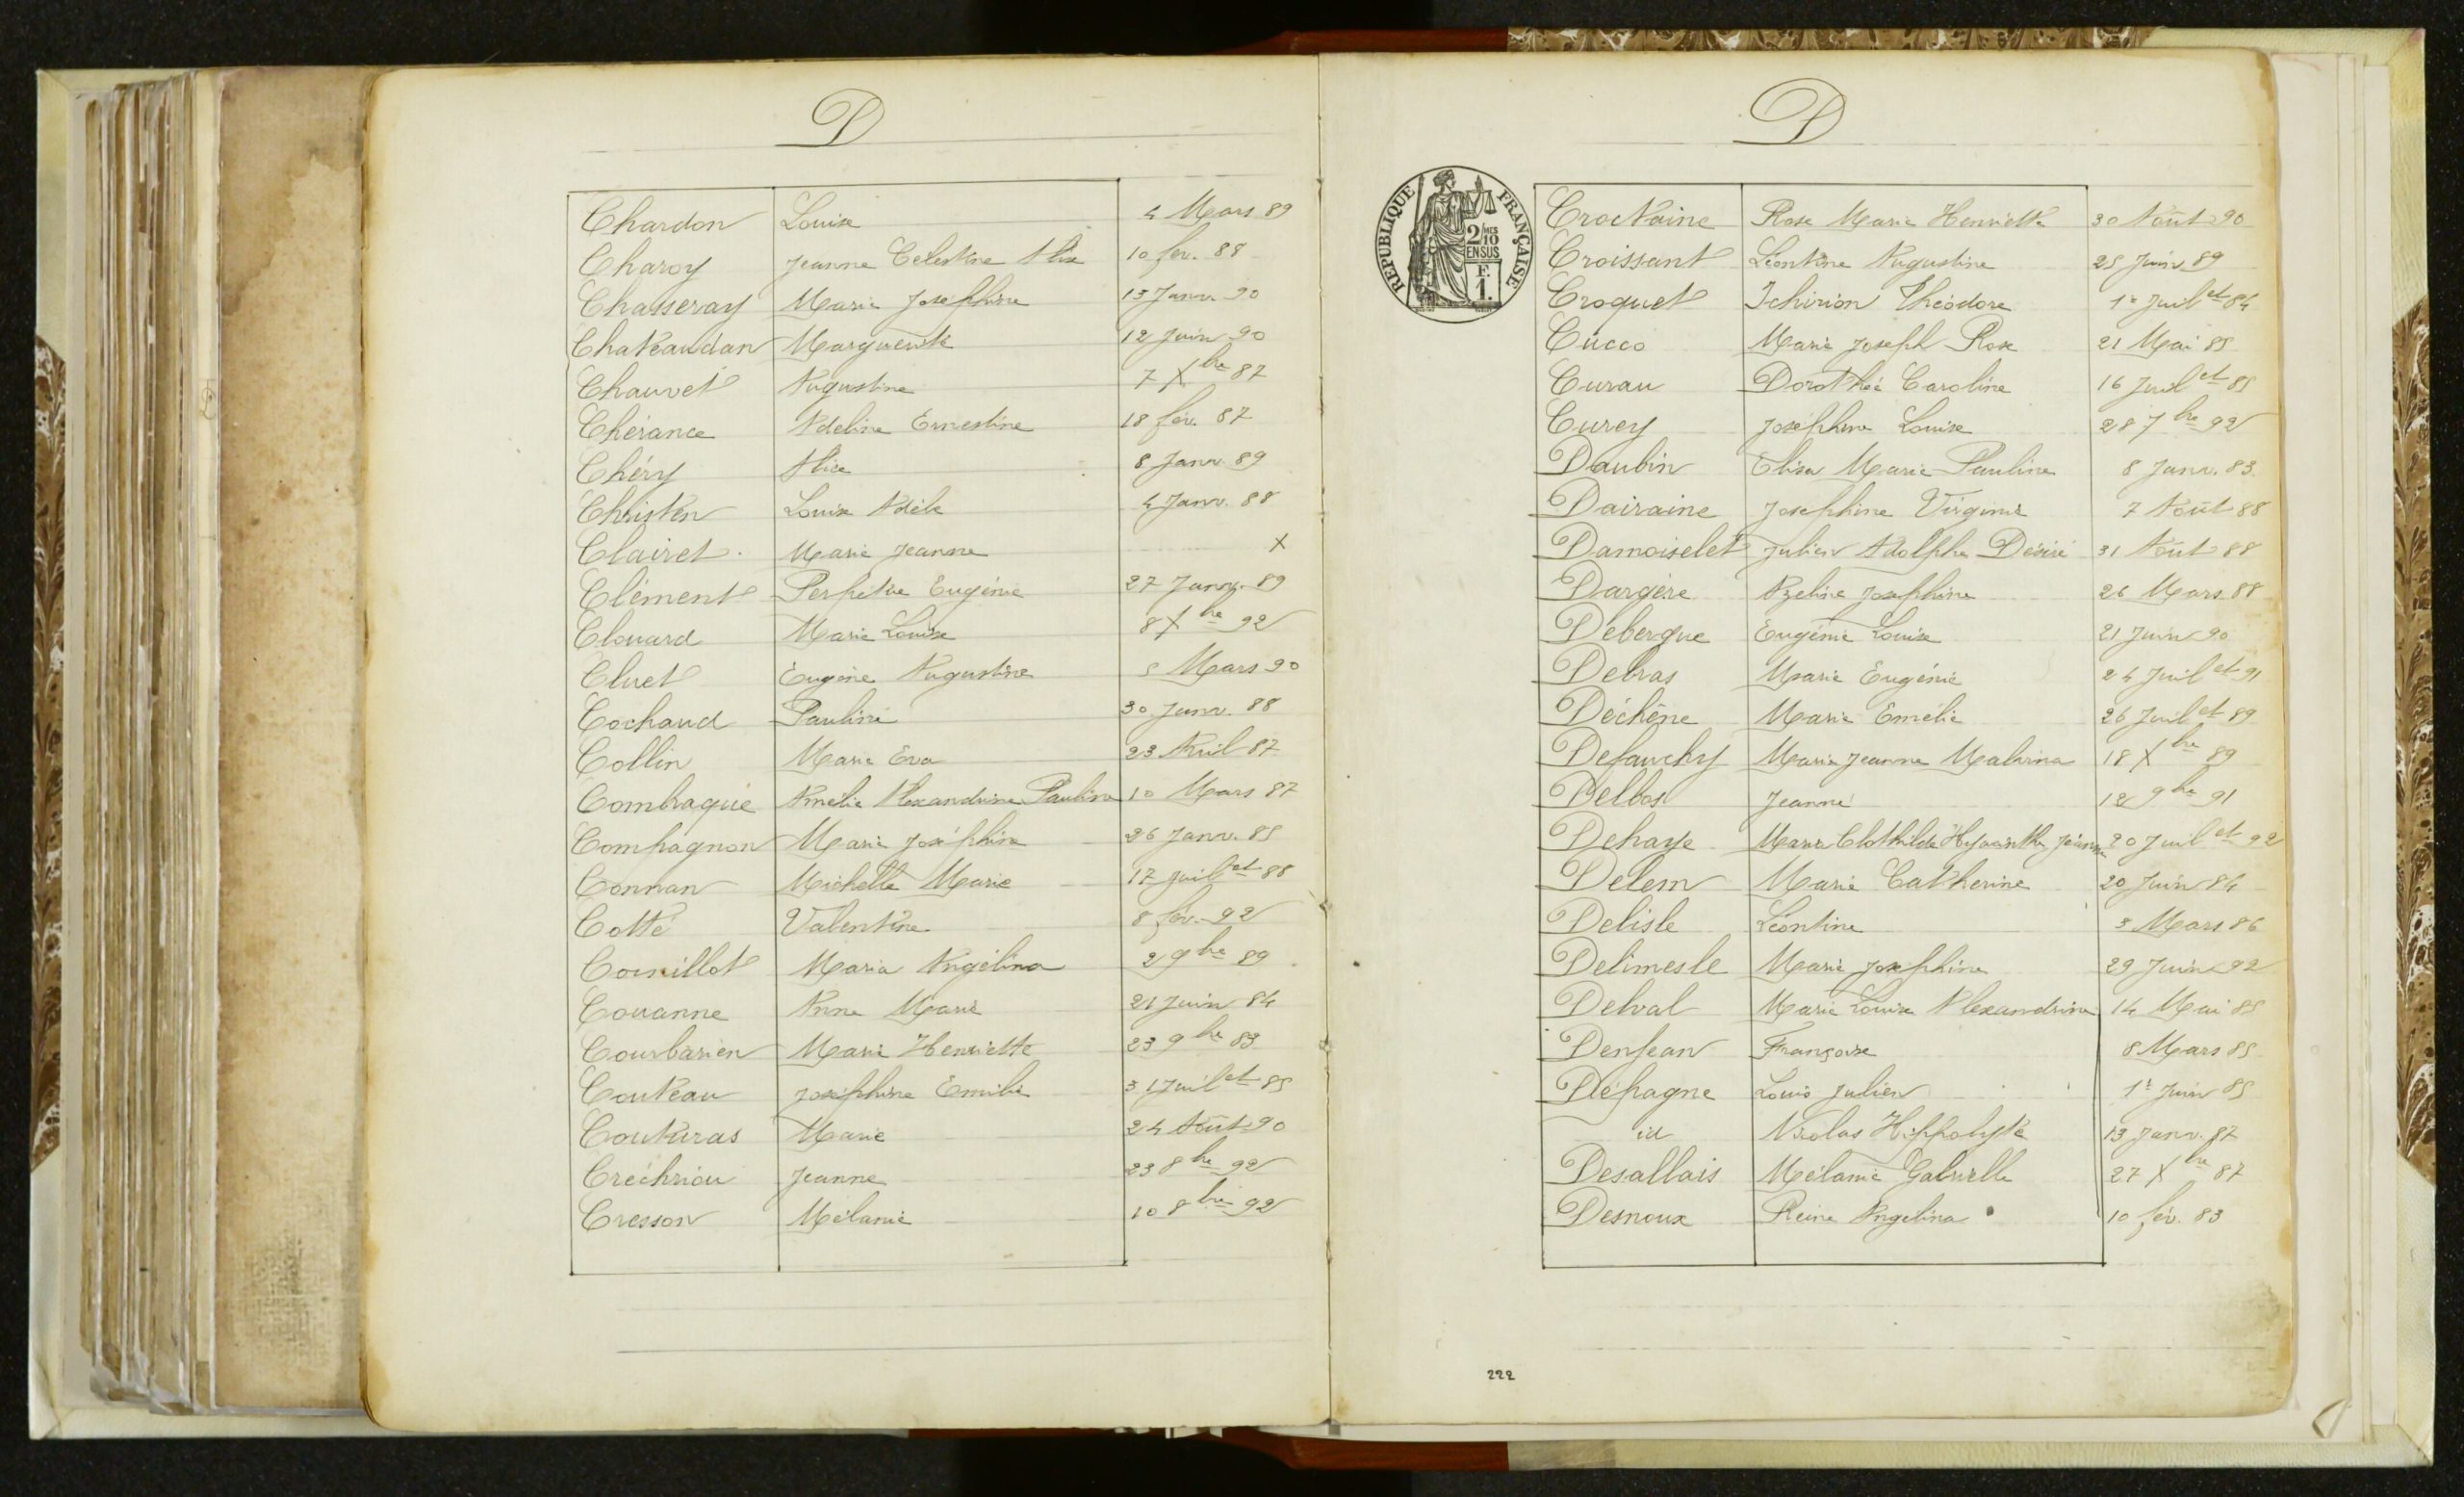 D
Chardon Louise 4 Mars 89
Charoy Jeanne Celestine Alix 10 fév. 88
Chasseray Marie Joséphine 13 Janv. 90
Chateaudan Marguerite 12 Juin 90
Chauvet Augustine 7 Xbre 87
Chérance Adeline Ernestine 18 fév. 87
Chéry Alice 8 Janv. 89
Christen Louise Adèle 4 Janv. 88
Clairet. Marie Jeanne X
Clément Perpétue Eugénie 27 Janv. 89
Clouard Marie Louise 8 Xbre 92
Cluet Eugénie Augustine 5 Mars 90
Cochaud Pauline 30 Janv. 88
Collin Marie Eva 23 Avril 87
Combaquie Amélie Alexandrine Pauline 10 Mars 87
Compagnon Marie Joséphine 26 Janv. 85
Connan Michelle Marie 17 Juillet 88
Cotté Valentine 8 fév. 92
Cornillot Maria Angélina 2 9bre 89
Couanne Anne Marie 21 Juin 84
Courbarien Marie Henriette 23 9bre 83
Couteau Joséphine Emilie 31 Juillet 85
Couturas Marie 24 Août 90
Créchriou Jeanne 23 8bre 92
Cresson Mélanie 10 8bre 92
D
RÉPUBLIQUE FRANÇAISE
2/10 MES
EN SUS
F.
1.
Croctaine Rose Marie Henriette 30 Août 90
Croissant Léontine Augustine 25 Juin 89
Croquet Ichirion Théodore 1r Juillet 84
Cucco Marie Joseph Rose 21 Mai 85
Curau Dorothée Caroline 16 Juillet 85
Curey Joséphine Louise 28 7bre 92
Daubin Elisa Marie Pauline 8 Janv. 83
Dairaine Joséphine Virginie 7 Août 88
Damoiselet Julien Adolphe Désiré 31 Août 88
Dargère Azeline Joséphine 26 Mars 88
Debergue Eugénie Louise 21 Juin 90
Debras Marie Eugénie 24 Juillet 91
Déchêne Marie Emélie 26 Juillet 89
Defauchy Marie Jeanne Malvina 18 Xbre 89
Delbos Jeanne 12 9bre 91
Dehaye Marie Clothilde Hyacinthe Jeanne 20 Juillet 92
Delem Marie Catherine 20 Juin 84
Delisle Léontine 3 Mars 86
Delimesle Marie Joséphine 29 Juin 92
Delval Marie Louise Alexandrine 14 Mai 85
Denjean Françoise 8 Mars 85
Dépagne Louis Julien 1r Juin 85
id Nicolas Hippolyte 13 Janv. 87
Desallais Mélanie Gabrielle 27 Xbre 87
Desnoux Reine Angélina 10 fév. 83
222